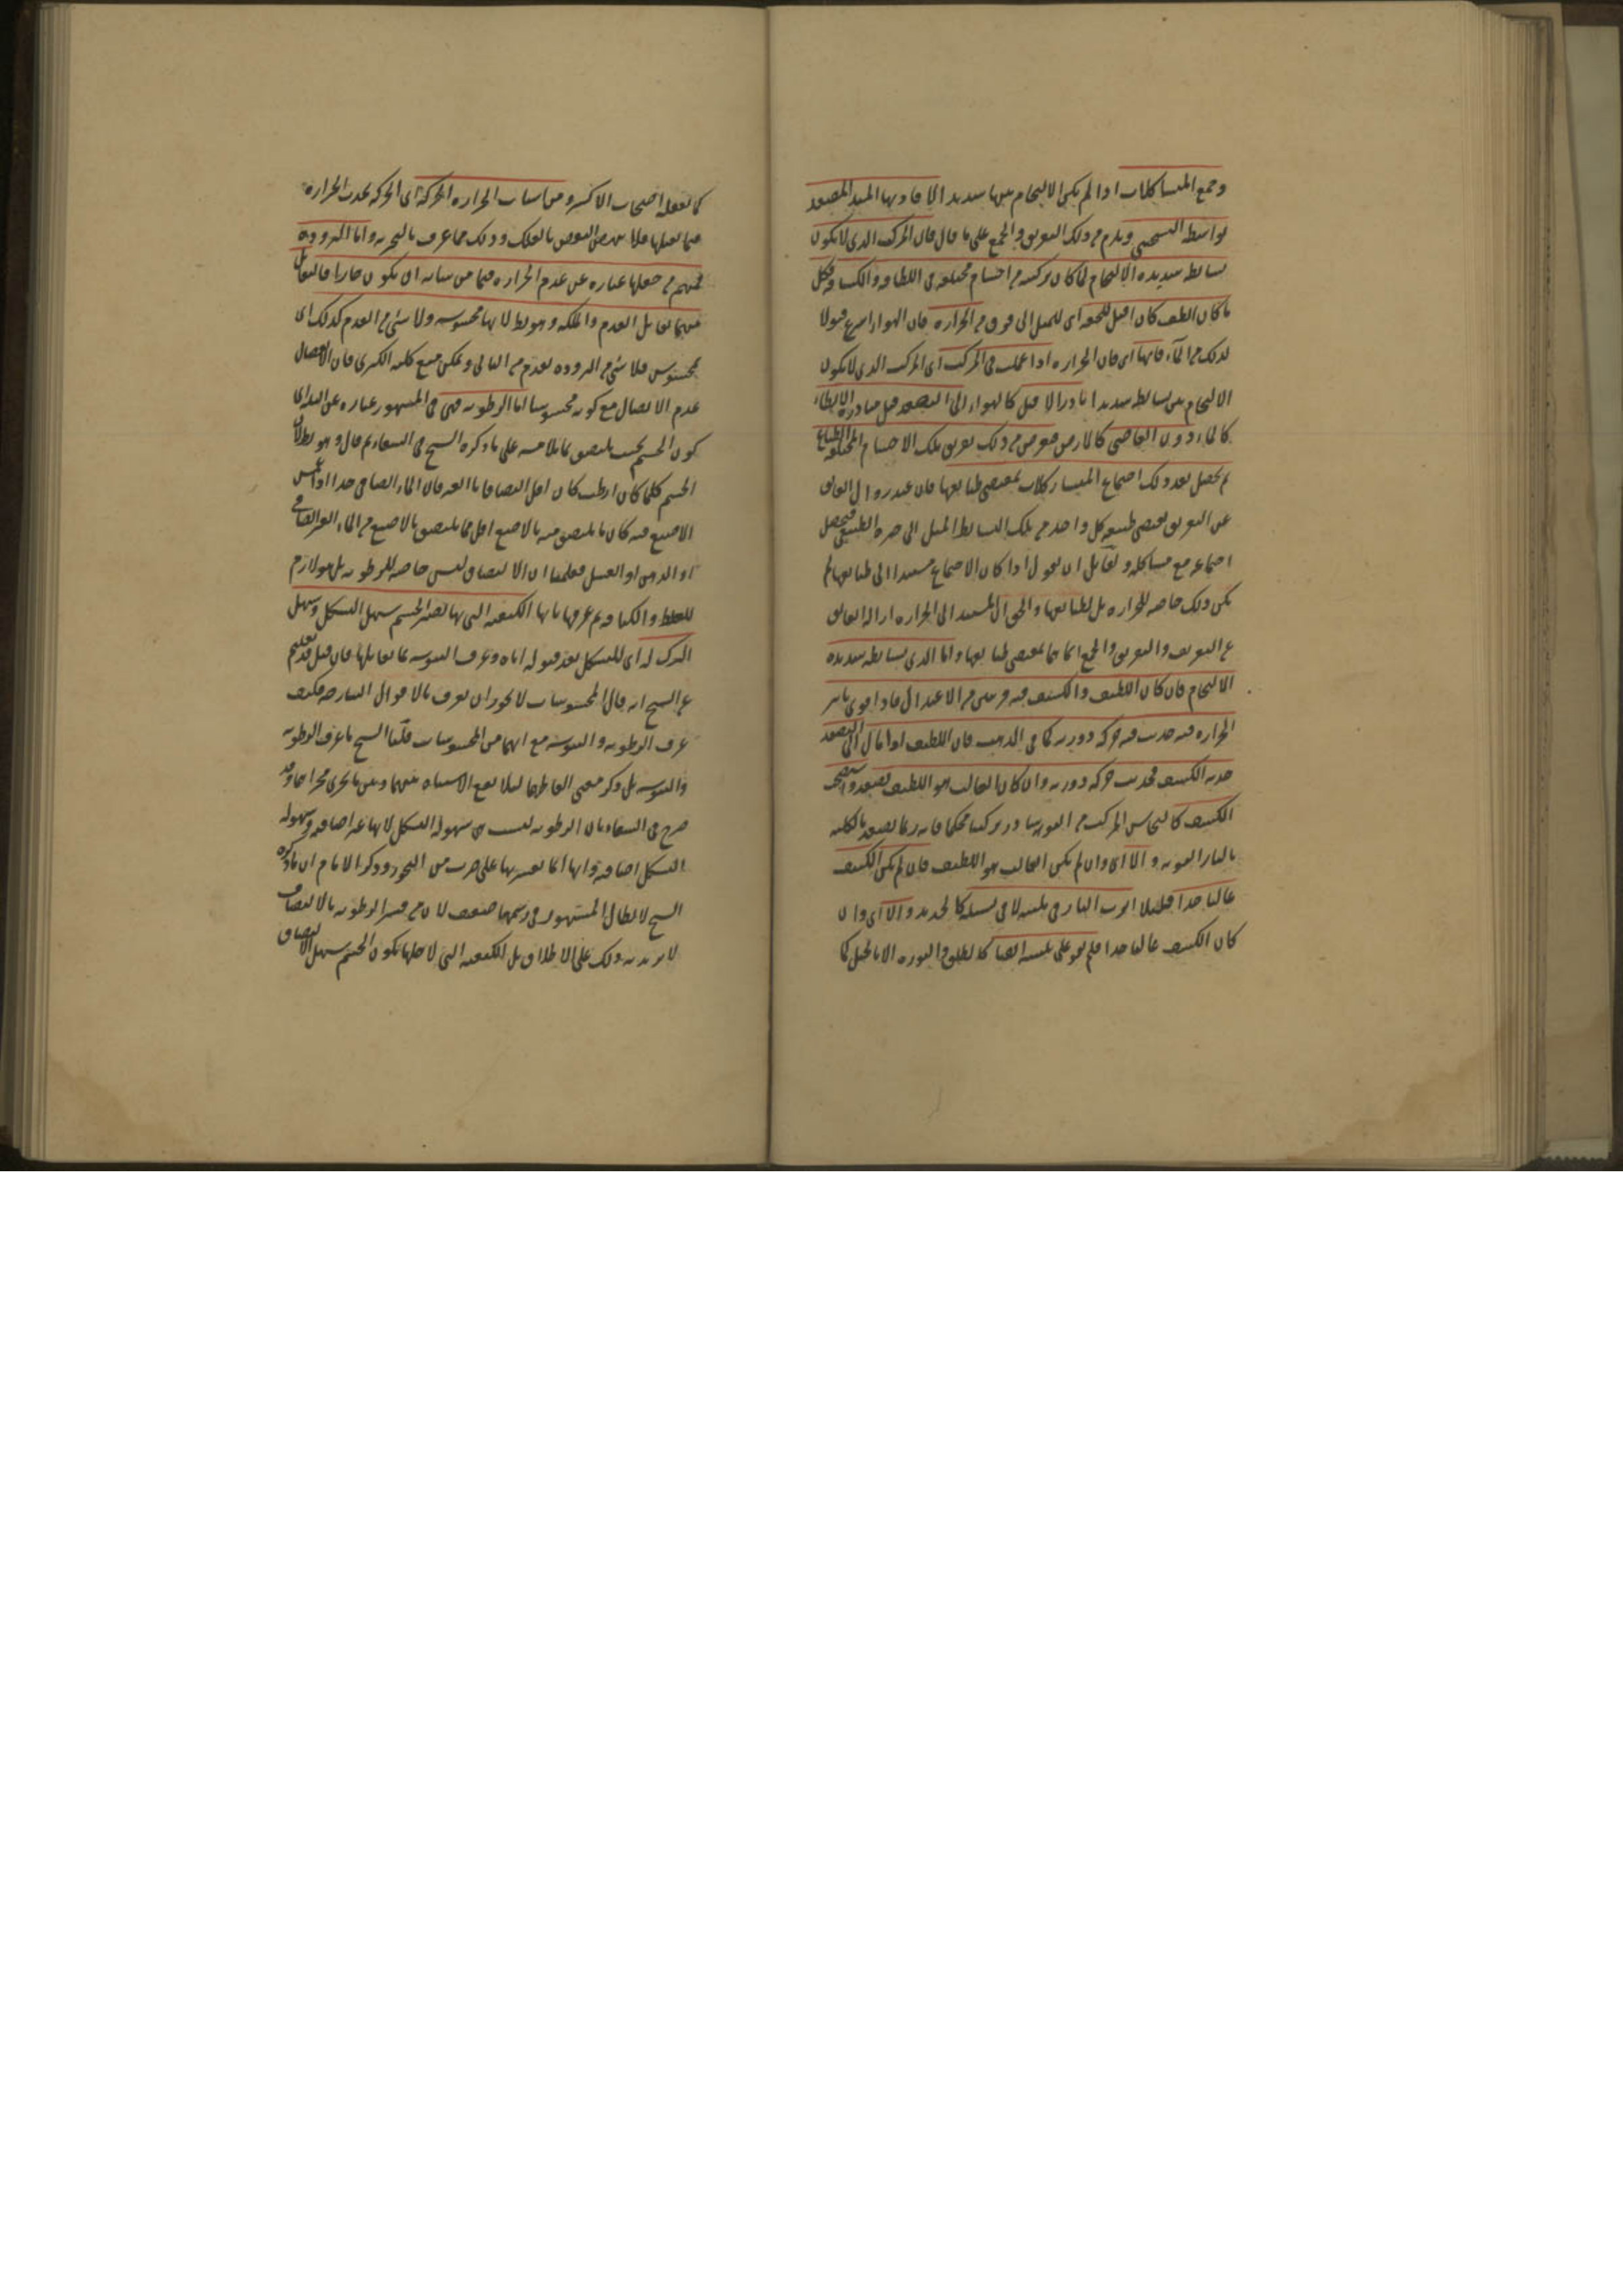 وجمع المتشاكلات اذا لم يكن الالتحام بين بسائطها شديدا لافادتها الميل المصعد
بواسطة التسخين ويلزم من ذلك التفريق والجمع على ما قال فان المركب الذي لا يكون
بسائطه شديدة الالتحام لما كان تركيبه من اجسام مختلفة في اللطافة والكثافة وكل
ما كان الطف كان اقبل للخفة اى للميل الى فوق من الحرارة فان الهواء اسرع قبولا
لذلك من الماء فانها اى فان الحرارة اذا عملت في المركب اى المركب الذي لا يكون
الالتحام بين بسائطه شديدا بادر الاقبل كالهواء الى التصعد قبل مبادرة الابطاء
كالماء دون العاصى كالارض فيعرض من ذلك تفريق تلك الاجسام المختلفة الطباع
ثم يحصل بعد ذلك اجتماع المتشاكلات بمقتضى طبائعها فان عند زوال العائق
عن التفريق يقتضى طبيعة كل واحد من تلك البسائط الميل الى حيزه الطبيعى فيحصل
اجتماعه مع مشاكله ولقائل ان يقول اذا كان الاجتماع مستندا الى طبائعها لم
يكن ذلك خاصة للحرارة بل لطبائعها والحق ان المستند الى الحرارة ازالة العائق
عن التفريق والتفريق والجمع انما هما بمقتضى طبائعها واما الذي بسائطه شديدة
الالتحام فان كان اللطيف والكثيف فيه قريبين من الاعتدال فاذا قوى تاثير
الحرارة فيه حدث فيه حركة دورية كما في الذهب فان اللطيف اذا مال الى التصعد
جذبه الكثيف فحدثت حركة دورية وان كان الغالب هو اللطيف يصعد واستصحب
الكثيف كالنحاس المركب من النوشادر تركيبا محكما فانه ربما يصعد بالكلية
بالنار القوية والا اى وان لم يكن الغالب هو اللطيف فان لم يكن الكثيف
غالبا جدا اثرت النار في تليينه لا في تسييله كالحديد والا اى وان
كان الكثيف غالبا جدا فلم تقو على تليينه ايضا كالطلق والنورة الا بالحيل كما
كما يفعله اصحاب الاكسير ومن اسباب الحرارة الحركة اى الحركة تحدث الحرارة
فيما يقبلها فلا يعرض النقض بالفلك وذلك مما عرف بالتجربة واما البرودة
فمنهم من جعلها عبارة عن عدم الحرارة فيما من شانه ان يكون حارا فالتقابل
بينهما تقابل العدم والملكة وهو بط لانها محسوسة ولا شئ من العدم كذلك اى
محسوس فلا شئ من البرودة بعدم من التالى ويمكن منع كلية الكبرى فان الانفصال
عدم الاتصال مع كونه محسوسا اما الرطوبة فهى في المشهور عبارة عن البلة اى
كون الجسم بحيث يلتصق بما يلامسه على ما ذكره الشيخ في الشفاء ثم قال وهو بط لان
الجسم كلما كان ارطب كان اقل التصاقا بالغير فان الماء الصافى جدا اذا غمس
الاصبع فيه كان ما يلتصق منه بالاصبع اقل مما يلتصق بالاصبع من الماء الغير الصافى
او الدهن او العسل فعلمنا ان الالتصاق ليس خاصة للرطوبة بل هو لازم
للغلظ والكثافة ثم عرفها بانها الكيفية التى بها يصير الجسم سهل التشكل وسهل
الترك له اى للتشكل بعد قبوله اياه وعرف اليبوسة بما يقابلها فان قيل قد نقلتم
عن الشيخ انه قال المحسوسات لا يجوز ان تعرف بالاقوال الشارحة فكيف
عرف الرطوبة واليبوسة مع انهما من المحسوسات قلنا الشيخ ما عرف الرطوبة
واليبوسة بل ذكر معنى الفاظهما ليلا يقع الاشتباه بينهما وبين ما يجرى مجراهما وقد
صرح في الشفاء بان الرطوبة ليست هى سهولة التشكل لانها غير اضافية وسهولة
التشكل اضافية وانها انما تفسر بها على ضرب من التجوز وذكر الامام ان ما ذكره
الشيخ لابطال المشهور في رسمها ضعيف لان من فسر الرطوبة بالالتصاق
لا يريد به ذلك على الاطلاق بل الكيفية التى لاجلها يكون الجسم سهل الالتصاق